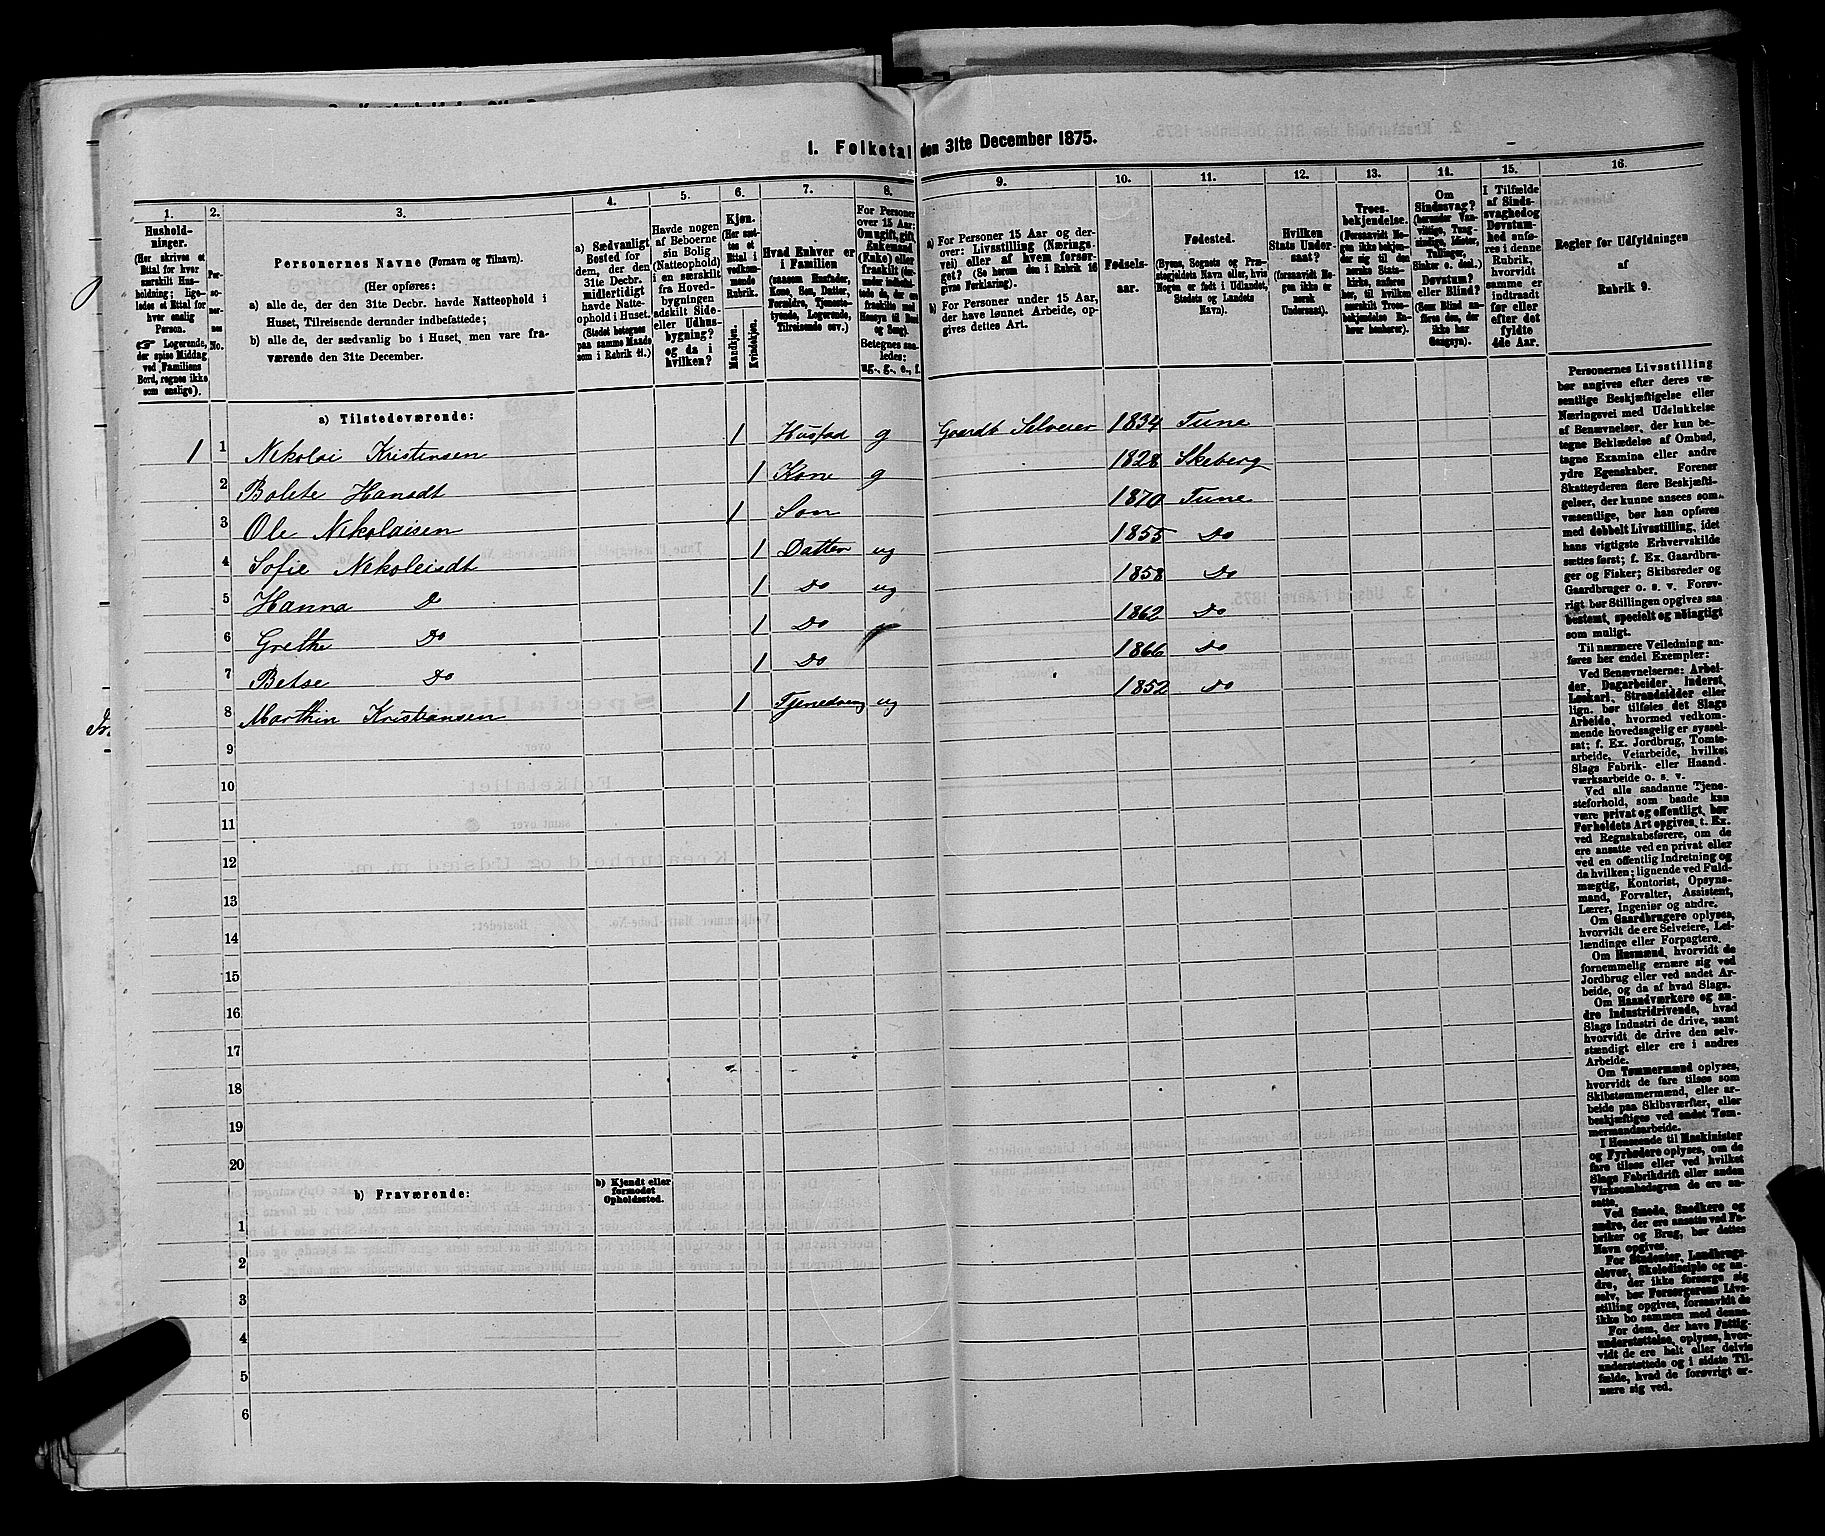 1. Folketal den 31te December 1875.
1. 2. 3. 4. 5. 6. 7. 8. 9. 10. 11. 12. 13. 14. 15. 16.
Hushold-
ninger.
(Her skrives et
Ettal for hver
særskilt Hus-
holdning; lige-
ledes et Ettal for
hver enslig
Person.
☞ Logerende,
der spise Middag
ved Familiens
Bord, regnes ikke
som enslige).
Per-
so-
ner-
nes
No.
Personernes Navne (Fornavn og Tilnavn).
(Her opføres:
a) alle de, der den 31te Decbr. havde Natteophold i
Huset, Tilreisende derunder indbefattede;
b) alle de, der sædvanlig bo i Huset, men vare fra-
værende den 31te December.
a) Sædvanligt
Bosted for
dem, der den
31te Decbr.
midlertidigt
havde Natte-
ophold i Huset.
(Stedet betegnes
paa samme Maade
som i Rubrik 11.)
Havde nogen
af Beboerne
sin Bolig
(Natteophold)
i en særskilt
fra Hoved-
bygningen
adskilt Side-
eller Udhus-
bygning?
og da i
hvilken?
Kjøn.
(Her sæt-
tes et
Ettal i
vedkom-
mende
Rubrik.
Mandkjøn.
Kvindekjøn.
Hvad Enhver er
i Familien
(saasom Husfader,
Kone, Søn, Datter,
Forældre, Tjeneste-
tyende, Logerende,
Tilreisende osv.)
For Personer
over 15 Aar:
Om ugift, gift,
Enkemand
(Enke) eller
fraskilt
Betegnes saa-
ledes:
ug., g., e., f.
a) For Personer 15 Aar og der-
over: Livsstilling (Nærings-
vei) eller af hvem forsør-
get? (Se herom den i Rubrik 16
givne Forklaring).
b) For Personer under 15 Aar,
der have lønnet Arbeide, op-
gives dettes Art.
Fødsels-
aar.
Fødested.
(Byens, Sognets og Præ-
stegjeldets Navn eller, hvis
Nogen er født i Udlandet,
Stedets og Landets
Navn).
Hvilken
Stats Under-
saat?
(forsaavidt No-
gen ikke er
norsk
Undersaat).
Troes-
bekjendelse.
(Forsaavidt No-
gen ikke bekjen-
der sig til den
norske Stats-
kirke, anføres
her, til hvilken
særskilt Troes-
bekjendelse En-
hver henhører).
Om
Sindssvag?
(herunder Van-
vittige, Tung-
sindige, Idioter,
Tullinger,
Sinker o. desl.)
Døvstum?
eller Blind?
(Som Blind an-
føres den, der
ikke har
Gangsyn).
I Tilfælde
af Sinds-
svaghed og
Døvstum-
hed anfø-
res i denne
Rubrik,
hvorvidt
samme er
indtraadt
før eller
efter det
fyldte
4de Aar.
Regler for Udfyldningen
af
Rubrik 9.
a) Tilstedeværende:
1 1 Nikolai Kristensen 1 Husfad g Gaardb Selveier 1834 Tune
2 Bolete Hansdt 1 Kone g 1828 Skeberg
3 Ole Nikolaisen 1 Søn 1870 Tune
4 Sofie Nikolaisdt 1 Datter ug 1855 Do
5 Hanna D 1 Do ug 1858 Do
6 Grethe Do 1 Do 1862 Do
7 Betse Do 1 Do 1866 Do
8 Marthin Kristiansen 1 Tjenedreng ug 1852 Do
9
10
11
12
13
14
15
16
17
18
19
20
b) Fraværende:
b) Kjendt eller
formodet
Opholdssted.
1
2
3
4
5
6
Personernes Livsstilling
bør angives efter deres væ-
sentlige Beskjæftigelse eller
Næringsvei med Udelukkelse
af Benævnelser, der kun be-
tegne Beklædelse af Ombud,
tagne Examina eller andre
ydre Egenskaber. Forener
Skatteyderen flere Beskjæfti-
gelser, der kunne ansees som
væsentlige, bør han opføres
med dobbelt Livsstilling, idet
hans vigtigste Erhvervskilde
sættes først; f. Ex. Gaardbru-
ger og Fisker; Skibsreder og
Gaardbruger o. s. v. Forøv-
rigt bør Stillingen opgives saa
bestemt, specielt og nøiagtigt
som muligt.
Til nærmere Veiledning an-
føres her endel Exempler:
Ved Benævnelserne: Arbei-
der, Dagarbeider, Inderst,
Løskarl, Strandsidder eller
lign. bør tilføies det Slags
Arbeide, hvormed vedkom-
mende hovedsagelig er syssel-
sat; f. Ex. Jordbrug, Tomte-
arbeide, Veiarbeide, hvilket
Slags Fabrik- eller Haand-
værksarbeide o. s. v.
Ved alle saadanne Tjene-
steforhold, som baade kan
være privat og offentligt, bør
Forholdets Art opgives, t. Ex.
ved Regnskabsførere, om de
ere ansatte ved en privat eller
ved en offentlig Indretning og
da hvilken; lignende ved Fuld-
mægtig, Kontorist, Opsyns-
mand, Forvalter, Assistent,
Lærer, Ingeniør og andre.
Om Gaardbrugere oplyses,
hvorvidt de ere Selveiere, Lei-
lændinge eller Forpagtere.
Om Husmænd, hvorvidt de
fornemmelig ernære sig ved
Jordbrug eller ved andet Ar-
beide, og da af hvad Slags.
Om Haandværkere og an-
dre Industridrivende, hvad
Slags Industri de drive, samt
hvorvidt de drive den selv-
stændigt eller ere i andres
Arbeide.
Om Tømmermænd oplyses,
hvorvidt de fare tilsøs som
Skibstømmermænd, eller ar-
beide paa Skibsværfter, eller
beskjæftiges ved andet Tøm-
mermandsarbeide.
I Henseende til Maskinister
og Fyrbødere oplyses, om de
fare tilsøs eller ved hvilket
Slags Fabrikdrift eller anden
Virksomhedsgren de ere an-
satte.
Ved Smede, Snedkere og
andre, der ere ansatte ved Fa-
briker og Brug, bør dettes
Navn opgives.
For Studenter, Landbrugs-
elever, Skoledisciple og an-
dre, der ikke forsørge sig
selv, bør Forsørgerens Livs-
stilling opgives, forsaavidt de
ikke bo sammen med denne.
For dem, der have Fattig-
understøttelse, oplyses, hvor-
vidt de ere helt eller delvis
understøttede og i sidste Til-
fælde, hvad de forøvrigt er-
nære sig ved.